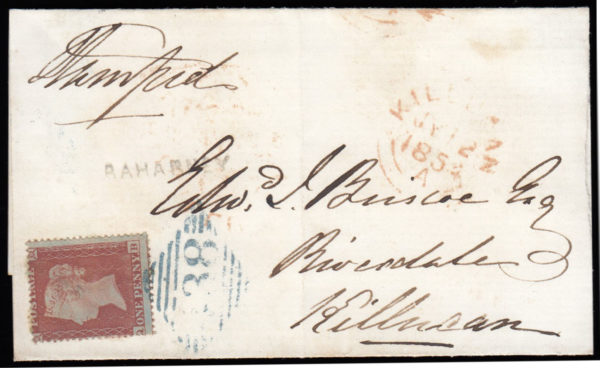 Stamped
RAHARNEY
KILLUCAN
JY 12
185
A
Edwd. J. Briscoe Esq
Riverdale
Killucan
POSTAGE
ONE PENNY
B
38